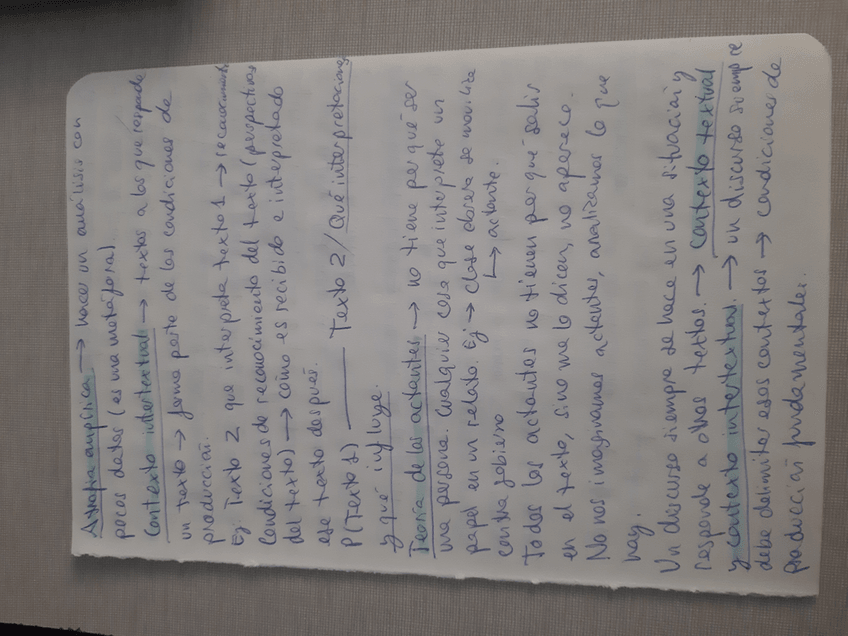 Atrofia empírica → hacer un análisis con
pocos datos (es una metáfora).
Contexto intertextual → textos a los que responde
un texto → forma parte de las condiciones de
producción.
Ej: Texto 2 que interpreta texto 1 → reconocimiento
Condiciones de reconocimiento del texto (perspectivas
del texto) → cómo es recibido e interpretado
ese texto después.
P(Texto 1) ——— Texto 2/Qué interpretaciones
y qué influye.
Teoría de los actantes → no tiene por qué ser
una persona. Cualquier cosa que interprete un
papel en un relato. Ej → clase obrera se moviliza
contra gobierno ↳ actante.
Todos los actantes no tienen por qué salir
en el texto, si no me lo dicen, no aparece.
No nos imaginamos actantes, analizamos lo que
hay.
Un discurso siempre se hace en una situación y
responde a otros textos. → Contexto textual
y contexto intertextual. → un discurso siempre
debe delimitar esos contextos → condiciones de
producción fundamentales.